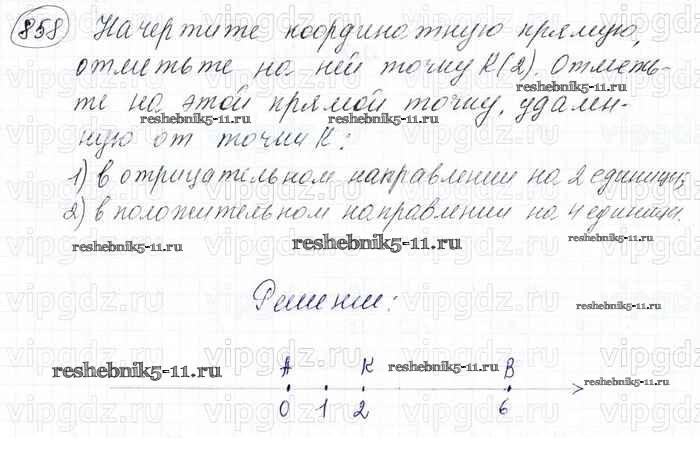 858 Начертите координатную прямую,
отметьте на ней точку К(2). Отметь-
те на этой прямой точку, удален-
ную от точки К:
1) в отрицательном направлении на 2 единицы;
2) в положительном направлении на 4 единицы.
Решение:
А К В
0 1 2 6
reshebnik5-11.ru
reshebnik5-11.ru
reshebnik5-11.ru
reshebnik5-11.ru
reshebnik5-11.ru
reshebnik5-11.ru
reshebnik5-11.ru
reshebnik5-11.ru
reshebnik5-11.ru
vipgdz.ru